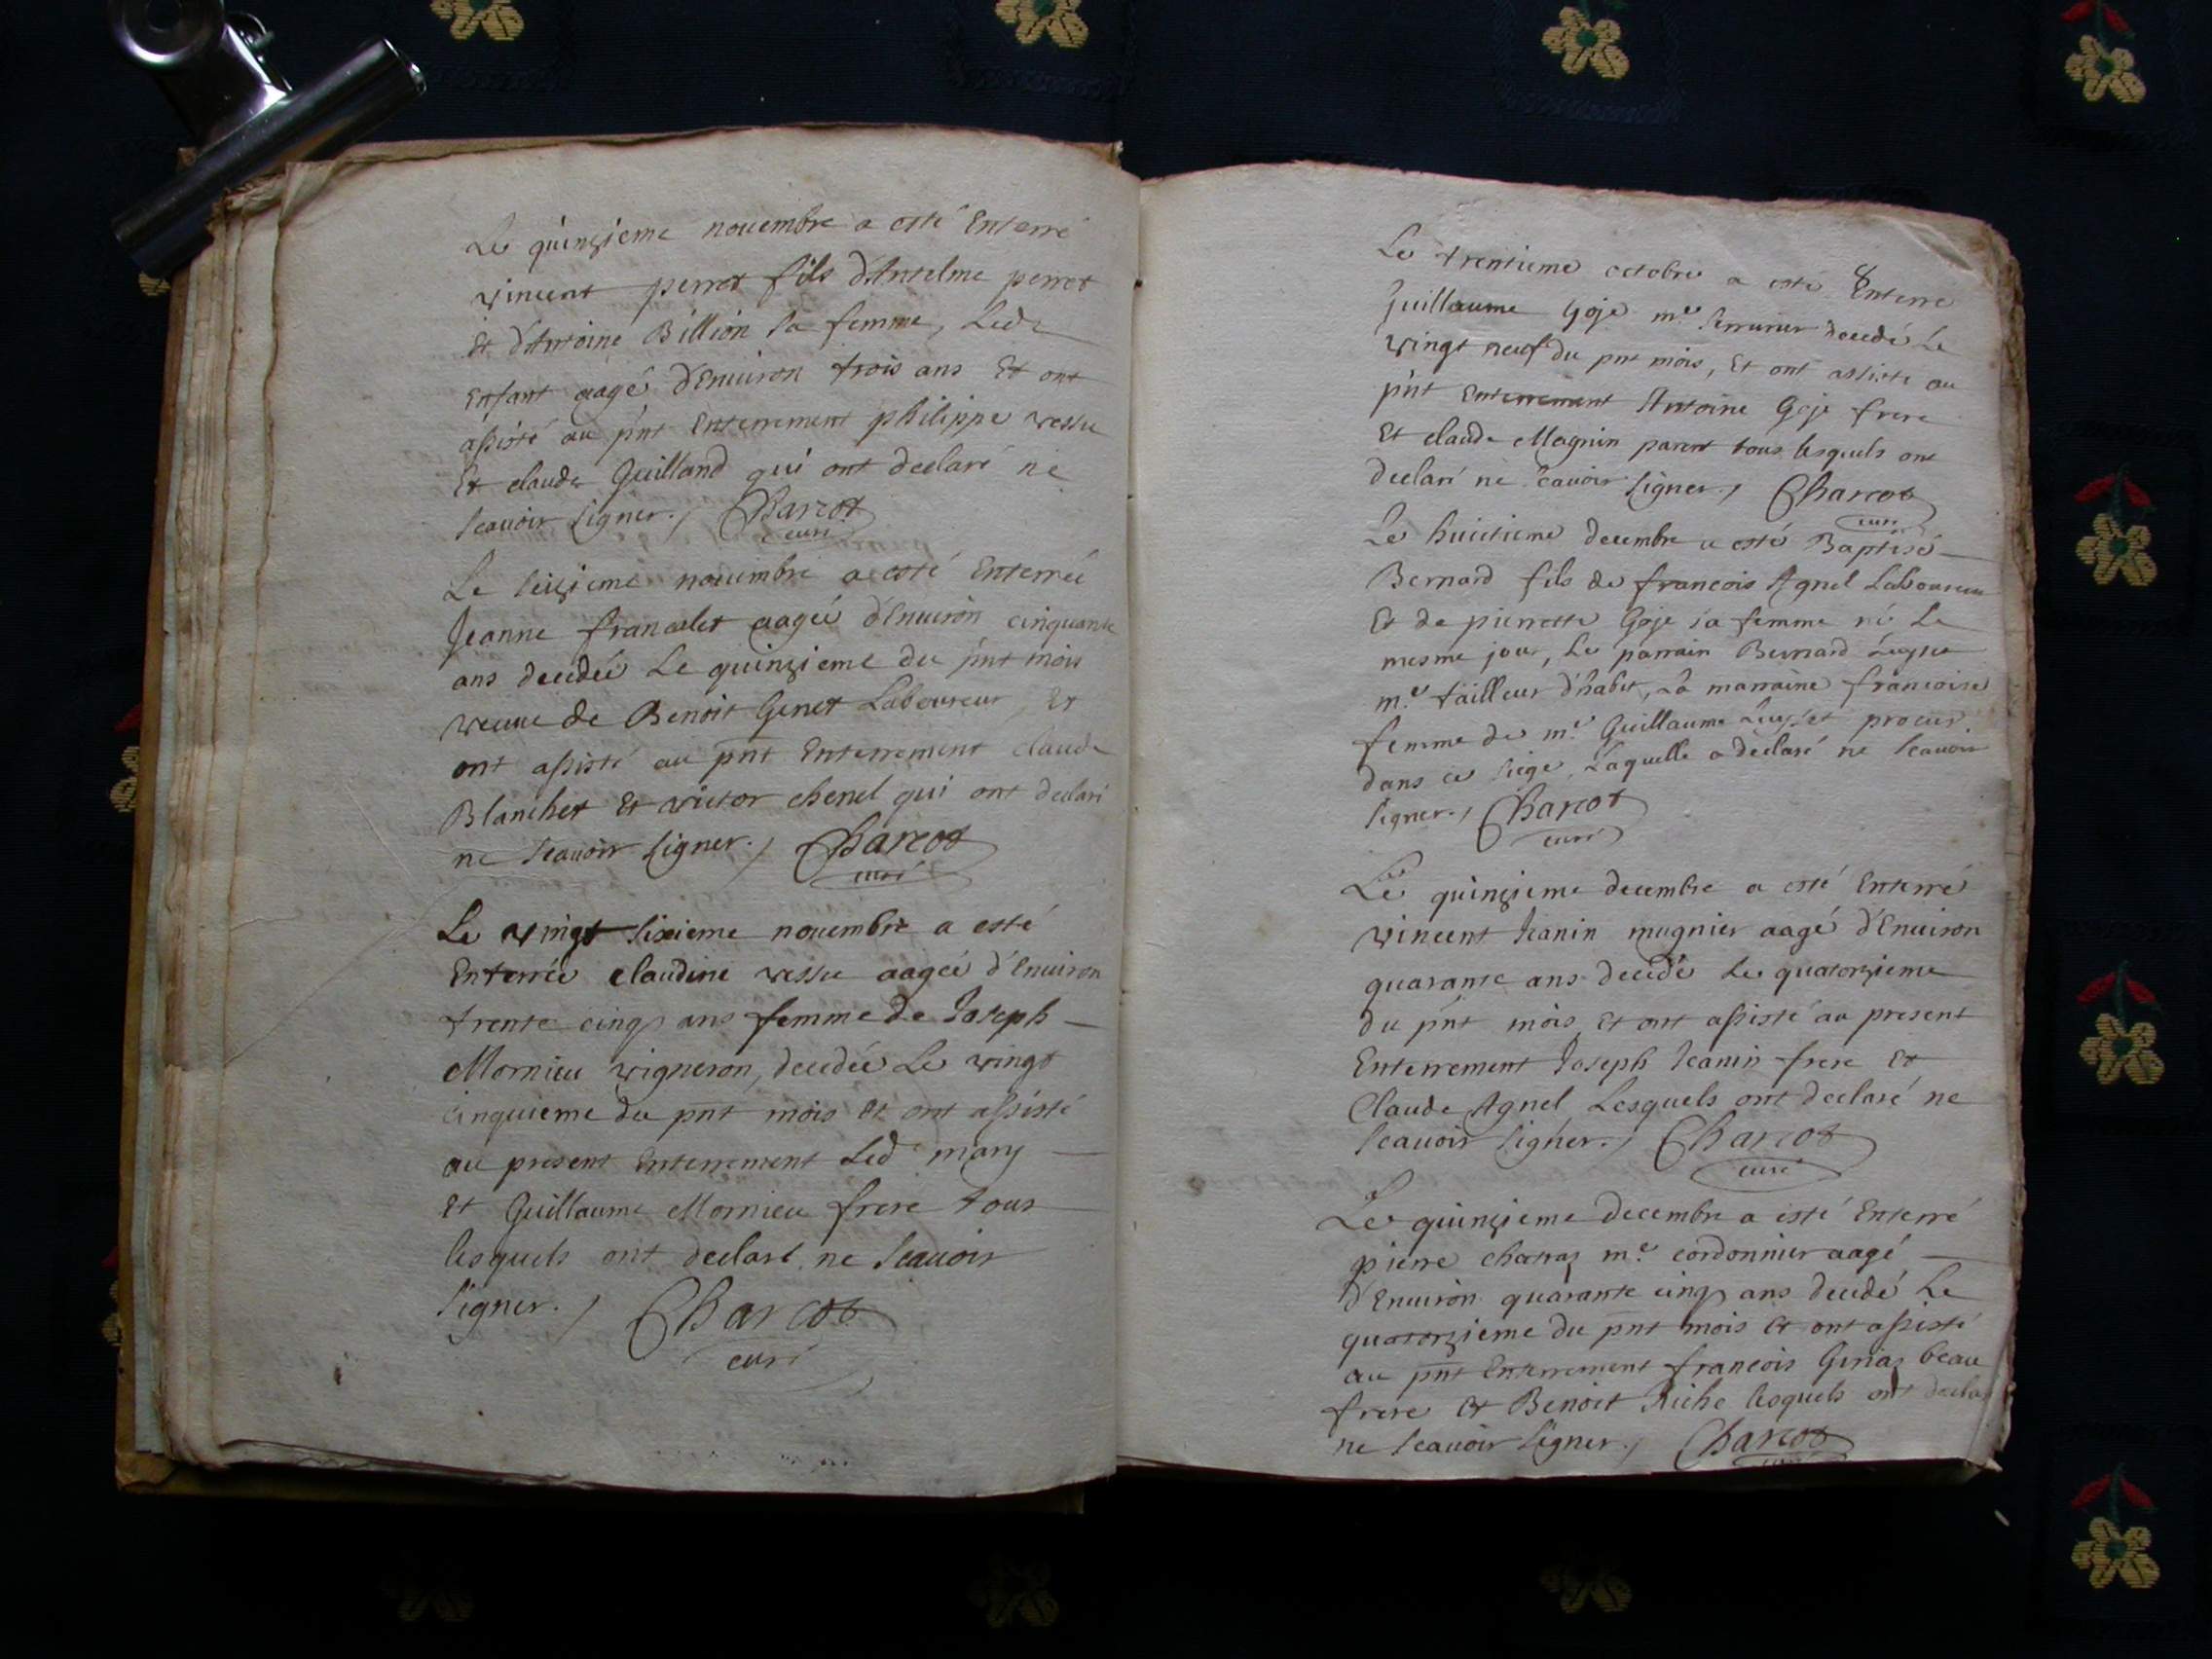 Le quinzieme nouembre a esté Enterré
vincent perret fils d'Antelme perret
Et d'Antoine Billion sa femme, Led.
Enfant aagé d'Enuiron trois ans Et ont
assisté au pnt Enterrement philippe vessu
Et claude Guilland qui ont declaré ne
scauoir signer./ Charcot
curé
Le seizieme nouembre a esté Enterrée
Jeanne francelet aagée d'Enuiron cinquante
ans decedée Le quinzieme du pnt mois
veuue de Benoit Genet Laboureur, Et
ont assisté au pnt Enterrement claude
Blanchet Et victor chenel qui ont declaré
ne scauoir signer./ Charcot
curé
Le vingt sixieme nouembre a esté
Enterrée claudine vessu aagée d'Enuiron
trente cinq ans femme de Joseph
Mornieu vigneron, decedée Le vingt
cinquieme du pnt mois Et ont assisté
au present Enterrement Led. mary
Et Guillaume Mornieu frere tous
lesquels ont declaré ne scauoir
signer./ Charcot
curé
Le trentieme octobre a esté Enterré
Guillaume Goje me. serrurier decedé Le
vingt neuf du pnt mois, Et ont assisté au
pnt Enterrement Antoine Goje frere
Et claude Magnin parent tous lesquels ont
declaré ne scauoir signer./ Charcot
curé
Le huictieme decembre a esté Baptisé
Bernard fils de francois Agnel Laboureur
Et de pierrette Goje sa femme né Le
mesme jour, Le parrain Bernard
me. tailleur d'habit, La marraine francoise
femme de me. Guillaume procur.
dans ce siege, Laquelle a declaré ne scauoir
signer./ Charcot
curé
Le quinzieme decembre a esté Enterré
vincent Jeanin mugnier aagé d'Enuiron
quarante ans decedé Le quatorzieme
du pnt mois Et ont assisté au present
Enterrement Joseph Jeanin frere Et
Claude Agnel Lesquels ont declaré ne
scauoir signer./ Charcot
curé
Le quinzieme decembre a esté Enterré
pierre chatraz me. cordonnier aagé
d'Enuiron quarante cinq ans decedé Le
quatorzieme du pnt mois Et ont assisté
au pnt Enterrement francois beau
frere Et Benoit Riche lesquels ont declaré
ne scauoir signer./ Charcot
curé